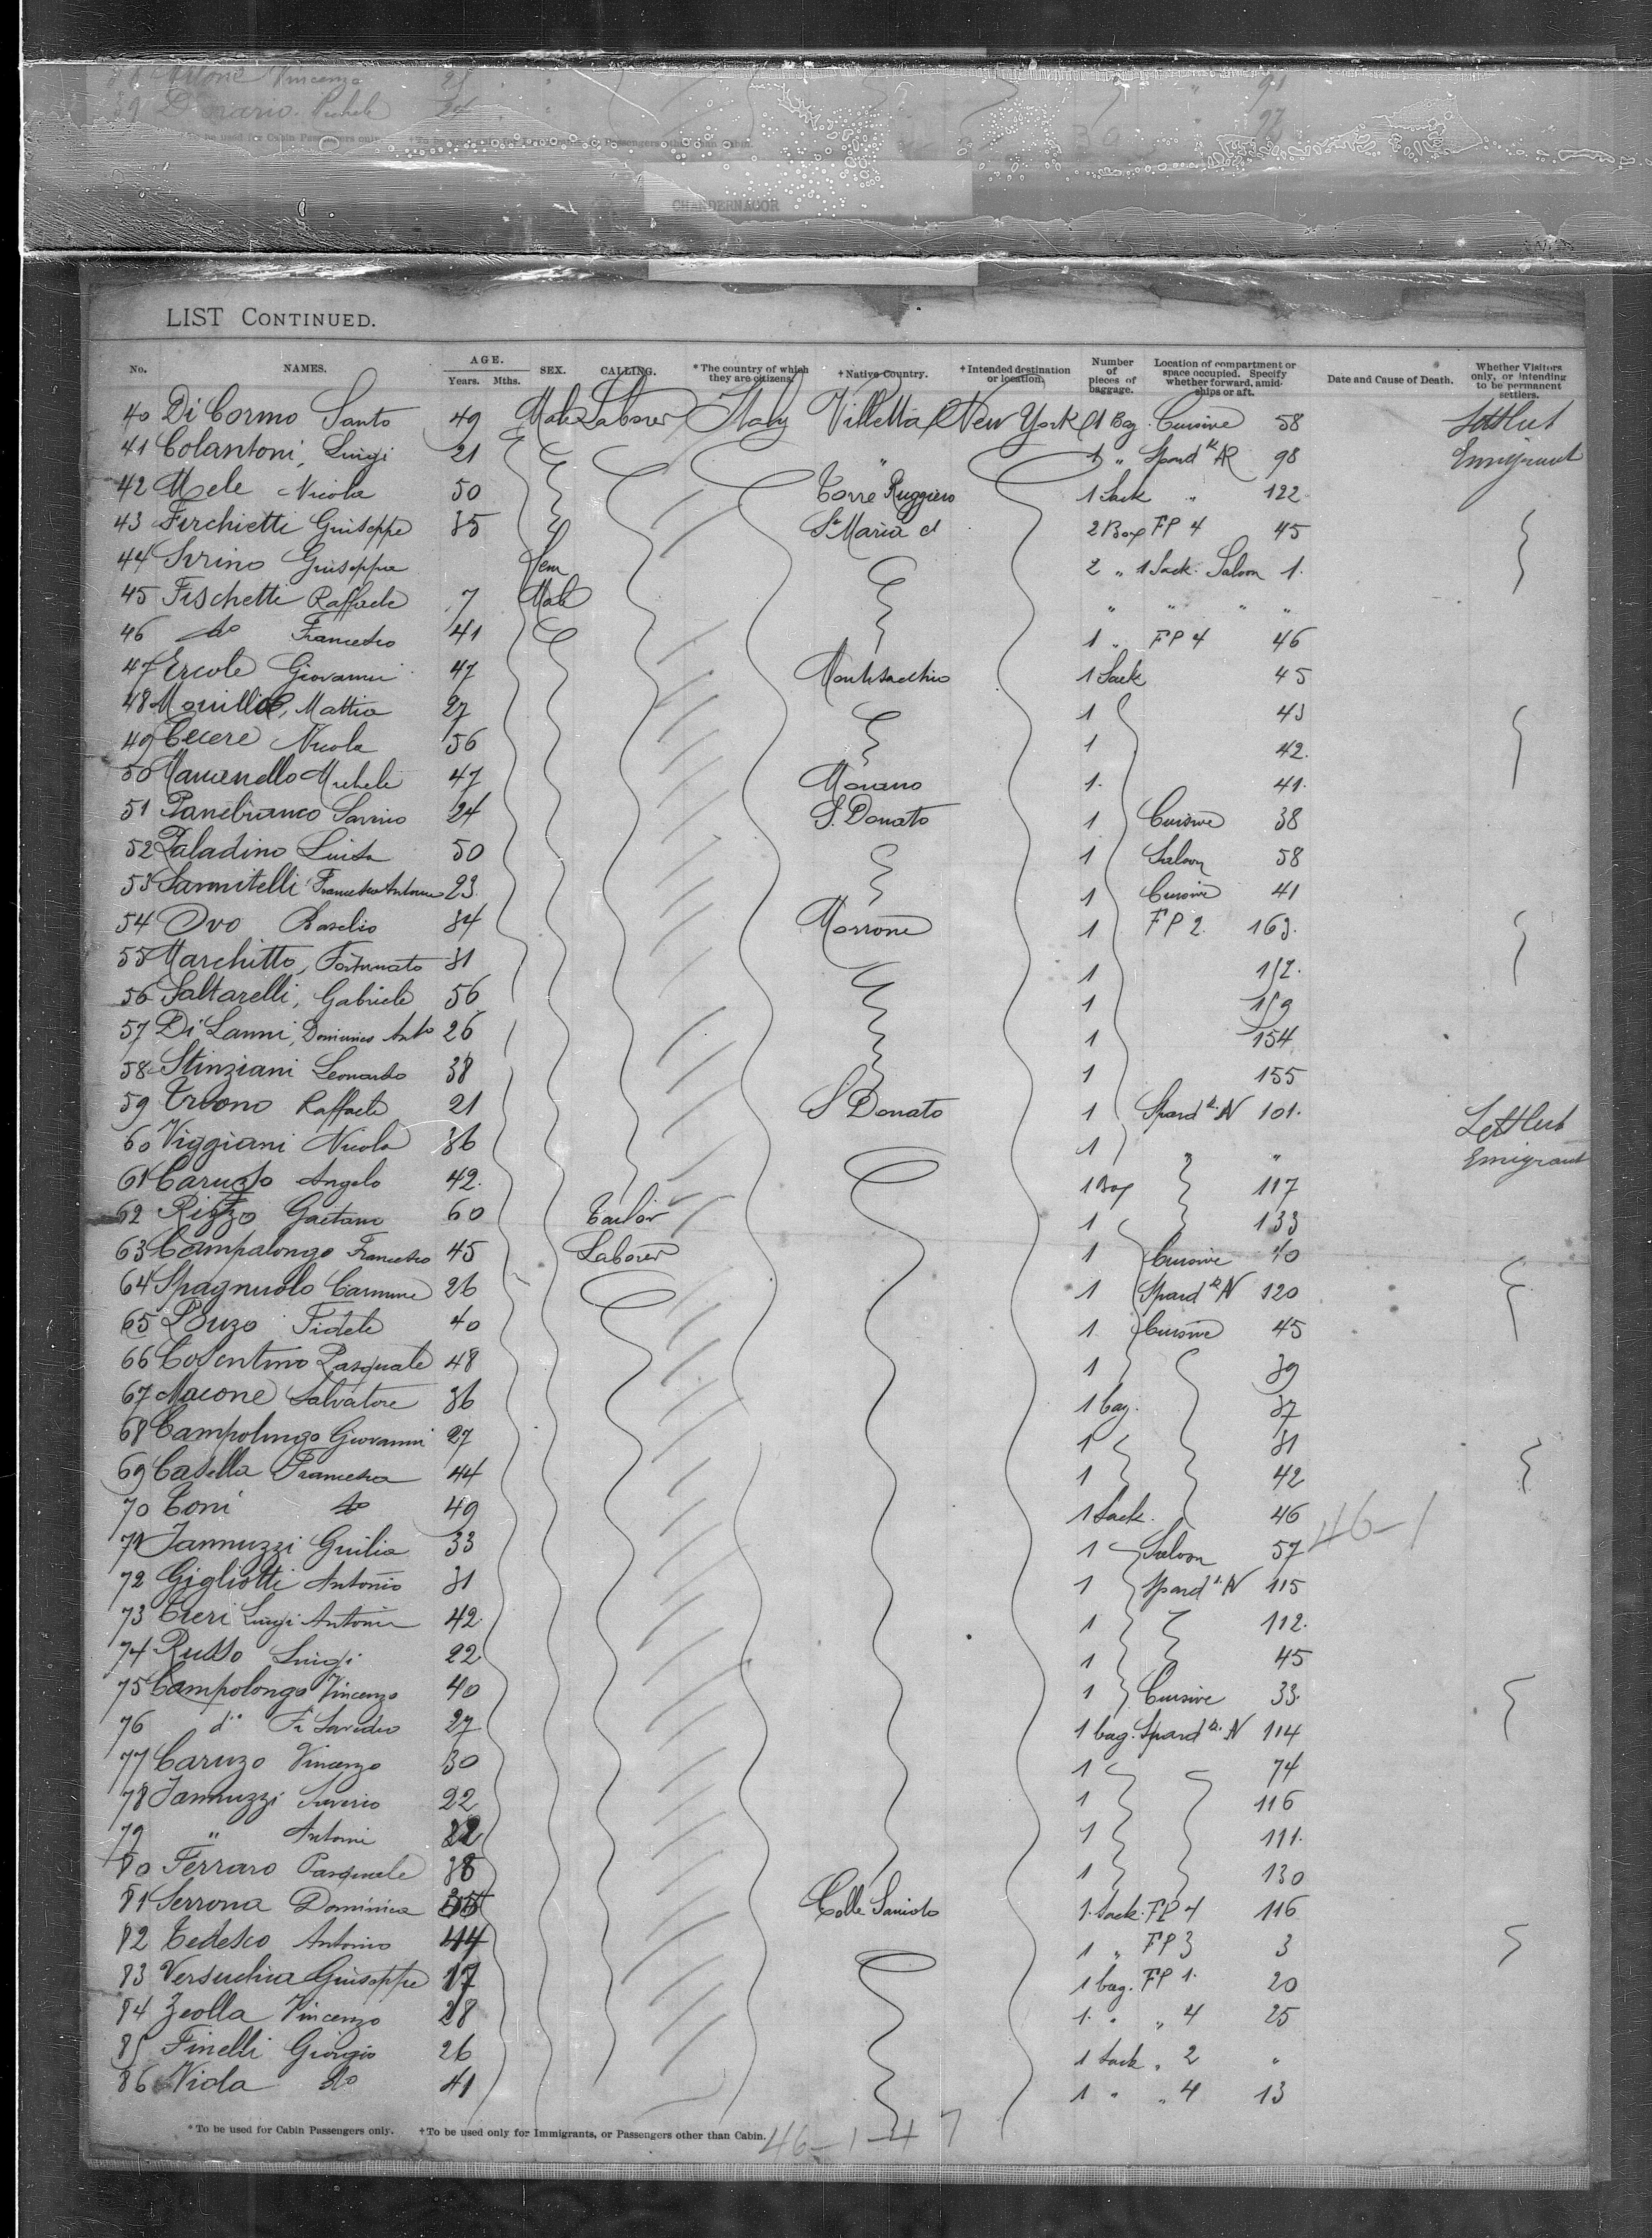 Vincenzo 25
89 Donario Michele 24
To be used for Cabin Passengers only. †To be used only for Immigrants, or Passengers other than Cabin.
CHANDERNAGOR
LIST CONTINUED.
No. NAMES. AGE. Years. Mths. SEX. CALLING. * The country of which they are citizens. † Native Country. † Intended destination or location. Number of pieces of baggage. Location of compartment or space occupied. Specify whether forward, amidships or aft. Date and Cause of Death. Whether Visitors only, or intending to be permanent settlers.
40 Di Cormo Santo 49 Male Laborer Italy Villetta New York 1 Bag Cuisine 58 Settlers
41 Colantoni, Luigi 21 " 1 " Spard 98 Emigrant
42 Mele Nicola 50 Torre Ruggiero 1 Sack " 122
43 Firchietti Guiseppe 35 Sta Maria d 2 Box FP 4 45
44 Serino Guiseppa Fem 2 " 1 Sack Saloon 1.
45 Fischetti Raffaele 7 Male " " " "
46 do Francesco 41 1 " FP 4 46
47 Ercole Giovanni 47 Montesacchio 1 Sack 45
48 Mattia 27 1 43
49 Cecere Nicola 56 1 42.
50 Michele 47 Morano 1. 41.
51 Panebianco 24 S. Donato 1 Cuisine 38
52 Paladino Luisa 50 1 Saloon 58
53 Sannitelli Francesco Antonio 23 1 Cuisine 41
54 Ovo Basilio 34 Morrone 1 FP 2. 163.
55 Marchitto, Fortunato 31 1 152.
56 Saltarelli, Gabriele 56 1 159
57 Di Lanni, Dominico Anto 26 1 154
58 Stinziani Leonardo 38 1 155
59 Raffaele 21 S Donato 1 Spard k. N 101. Settlers
60 Viggiani Nicola 36 1 " " Emigrant
61 Caruso Angelo 42. 1 Box 117
62 Rizzo Gaetano 60 Tailor 1 133
63 Campalongo Francesco 45 Laborer 1 Cuisine 40
64 Spagnuolo Carmine 26 1 Spard k N 120
65 Fidele 40 1. Cuisine 45
66 Cosentino Pasquale 48 1 39
67 Nacone Salvatore 36 1 bag. 37
68 Campolongo Giovanni 27 1 31
69 Casella Francesco 44 1 42
70 Toni do 49 1 Sack. 46 46-1
71 Jannuzzi Guilia 33 1 Saloon 57
72 Gigliotti Antonio 31 1 Spard k N 115
73 Creri Luigi Antonio 42. 1 112.
74 Russo Luigi 22 1 45
75 Campolongo Vincenzo 40 1 Cuisine 33.
76 do 27 1 bag. Spard k. N 114
77 Caruzo Vincenzo 30 1 74
78 Jannuzzi Saverio 22 1 116
79 " Antonio 1 111.
80 Ferraro Pasquale 38 1 130
81 Serrona Dominica Colle Sanido 1. Sack. FP 4 116
82 Tedesco Antonio 44 1 " FP 3 3
83 Guiseppe 17 1 bag. FP 1. 20
84 Zeolla Vincenzo 28 1. " " 4 25
85 Finelli Giorgio 26 1 Sack " 2 "
86 Viola do 41 1 " " 4 13
* To be used for Cabin Passengers only. † To be used only for Immigrants, or Passengers other than Cabin. 46-1-47